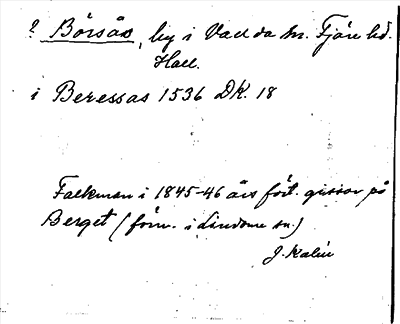 ? Börsås, by i Vallda sn. Fjäre hd.
Hall.
i Beressas 1536 DK. 18
Falkman i 1845-46 års fört. gissar på
Berget (förm. i Lindome sn.)
J. Kalén